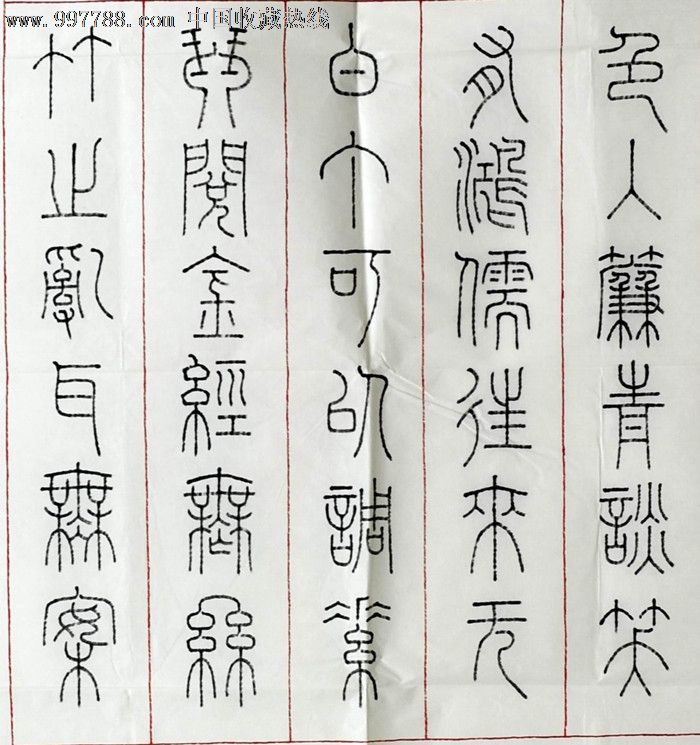 www.997788.com 中国收藏热线
色入簾青談笑
有鴻儒往來无
白丁可以調素
琴閱金經無絲
竹之亂耳無案